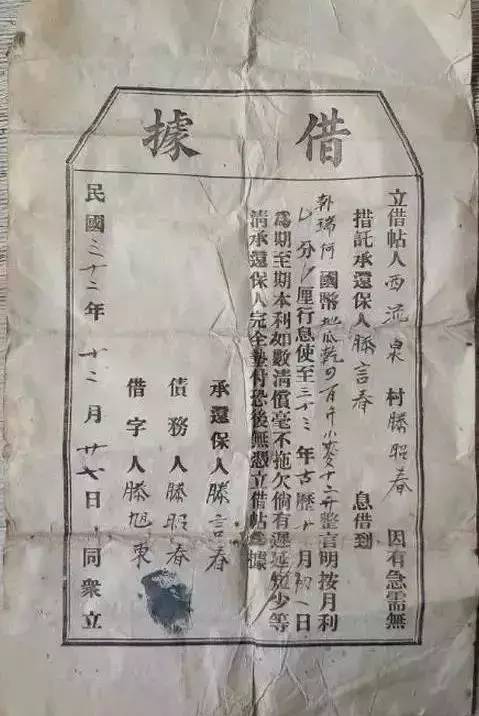 借據
立借帖人西流泉村滕昭春因有急需無
措託承還保人滕言春息借到
瑞何國幣地瓜乾四百斤小麥十二斤整言明按月利
分厘行息使至三十三年古歷十月初一日
為期至期本利如數清償毫不拖欠倘有遲延短少等
清承還保人完全墊付恐後無憑立借帖為據
承還保人滕言春
債務人滕昭春
借字人滕旭東
民國三十二年十二月廿七日同衆立